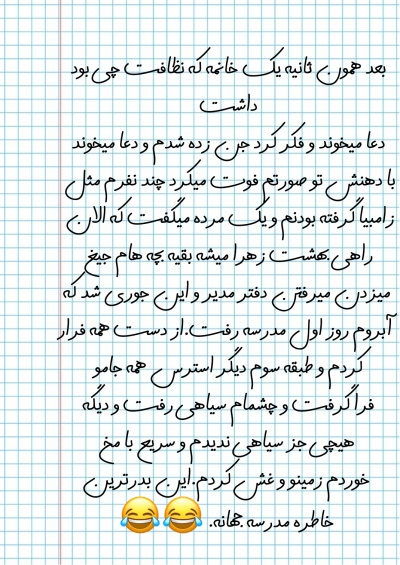 بعد همون ثانیه یک خانمه که نظافت چی بود
داشت
دعا میخوند و فکر کرد جن زده شدم و دعا میخوند
با دهنش تو صورتم فوت میکرد چند نفرم مثل
زامبیا گرفته بودنم و یک مرده میگفت که الان
راهی بهشت زهرا میشه بقیه بچه هام جیغ
میزدن میرفتن دفتر مدیر و این جوری شد که
آبروم روز اول مدرسه رفت. از دست همه فرار
کردم و طبقه سوم دیگر استرس همه جامو
فرا گرفت و چشمام سیاهی رفت و دیگه
هیچی جز سیاهی ندیدم و سریع با مخ
خوردم زمینو و غش کردم. این بدرترین
خاطره مدرسه جهانه. 😂😂